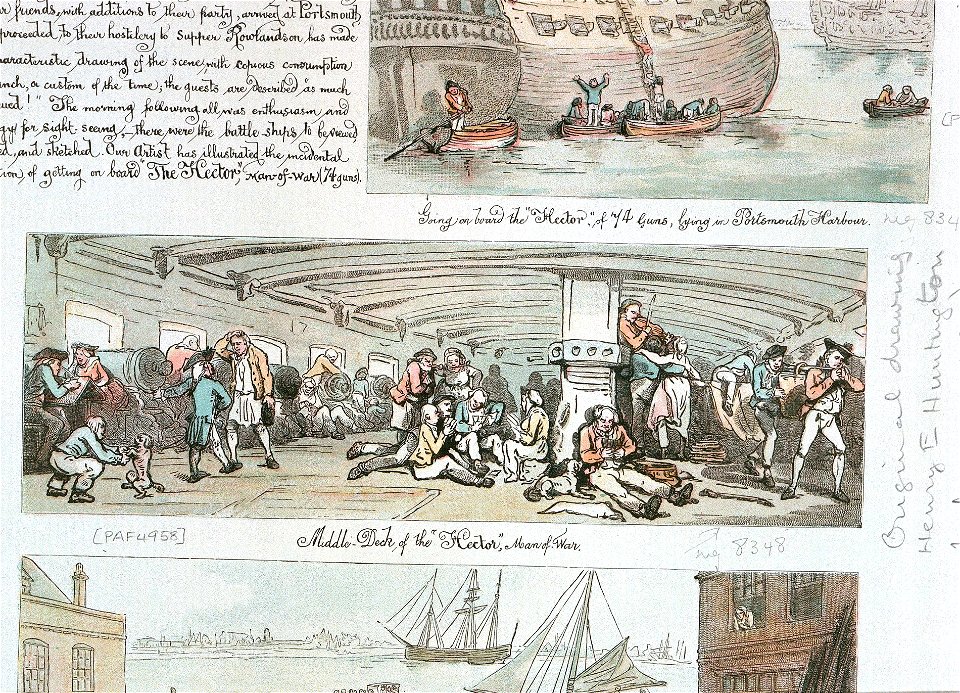 r friends, with additions to their party, arrived at Portsmouth,
proceeded, to their hostelery to Supper Rowlandson has made
aracteristic drawing of the scene, with copious consumption
nch, a custom of the time; the guests are described "as much
ued!" The morning following all was enthusiasm, and
gy for sight-seeing,– there were the battle-ships to be viewed
ed, and sketched. Our Artist has illustrated the incidental
ion, of getting on board "The Hector", Man-of-War (74 guns).
Going on board the "Hector", of 74 Guns, lying in Portsmouth Harbour.
neg 834
Original drawing
Henry E Huntington
[PAF4958]
Middle-Deck, of the "Hector", Man of War.
neg 8348